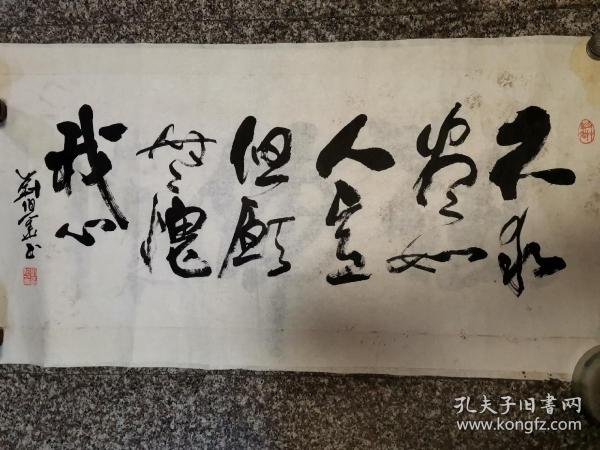 不求
尽如
人意
但愿
无愧
我心
孔夫子旧書网
www.kongfz.com